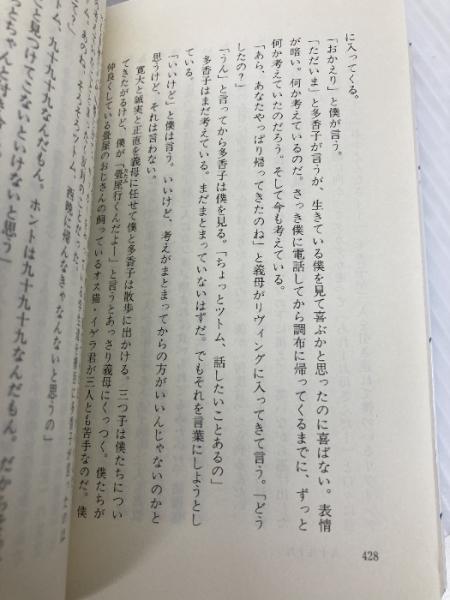 に入ってくる。
「おかえり」と僕が言う。
「ただいま」と多香子が言うが、生きている僕を見て喜ぶかと思ったのに喜ばない。表情
が暗い。何か考えているのだ。さっき僕に電話してから調布に帰ってくるまでに、ずっと
何か考えていたのだろう。そして今も考えている。
「あら、あなたやっぱり帰ってきたのね」と義母がリヴィングに入ってきて言う。「どう
したの?」
「うん」と言ってから多香子は僕を見る。「ちょっとツトム、話したいことあるの」
多香子はまだ考えている。まだまとまっていないはずだ。でもそれを言葉にしようとし
ている。
「いいけど」と僕は言う。いいけど、考えがまとまってからの方がいいんじゃないのかと
思うけど、それは言わない。
寛大と誠実と正直を義母に任せて僕と多香子は散歩に出かける。三つ子は僕たちについ
てきたがるけど、僕が「畳屋行くんだよー」と言うとあっさり義母にくっつく。僕たちが
仲良くしている畳屋のおじさんの飼っているオス猫・イゲラ君が三人とも苦手なのだ。僕
ツトム、九十九十九なんだもん。ホントは九十九十九なんだもん。だから
と見つけてこないといけないと思う」
428